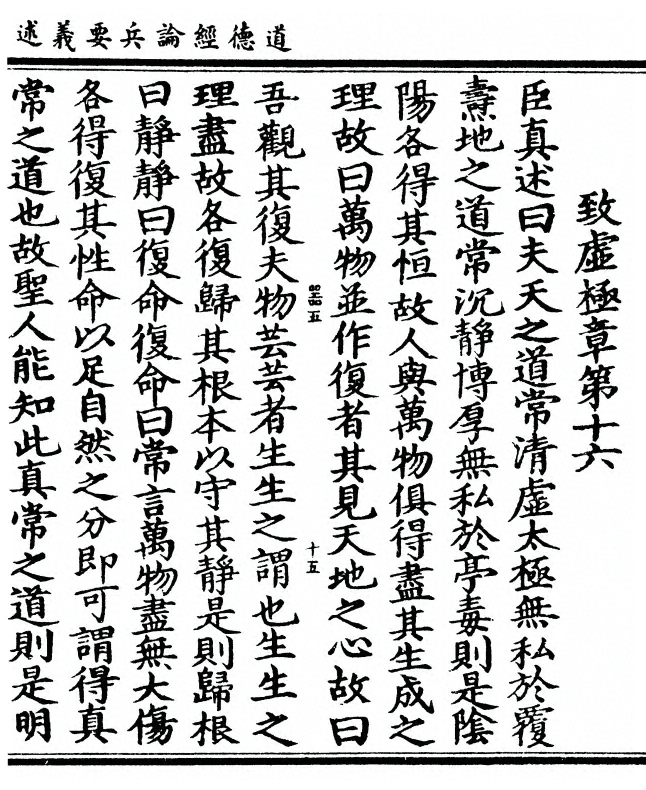 道德經論兵要義述
致虛極章第十六
臣真述曰夫天之道常清虛太極無私於覆
燾地之道常沉靜博厚無私於亭毒則是陰
陽各得其恒故人與萬物俱得盡其生成之
理故曰萬物並作復者其見天地之心故曰
吾觀其復夫物芸芸者生生之謂也生生之
理盡故各復歸其根本以守其靜是則歸根
曰靜靜曰復命復命曰常言萬物盡無大傷
各得復其性命以足自然之分即可謂得真
常之道也故聖人能知此真常之道則是明
十五